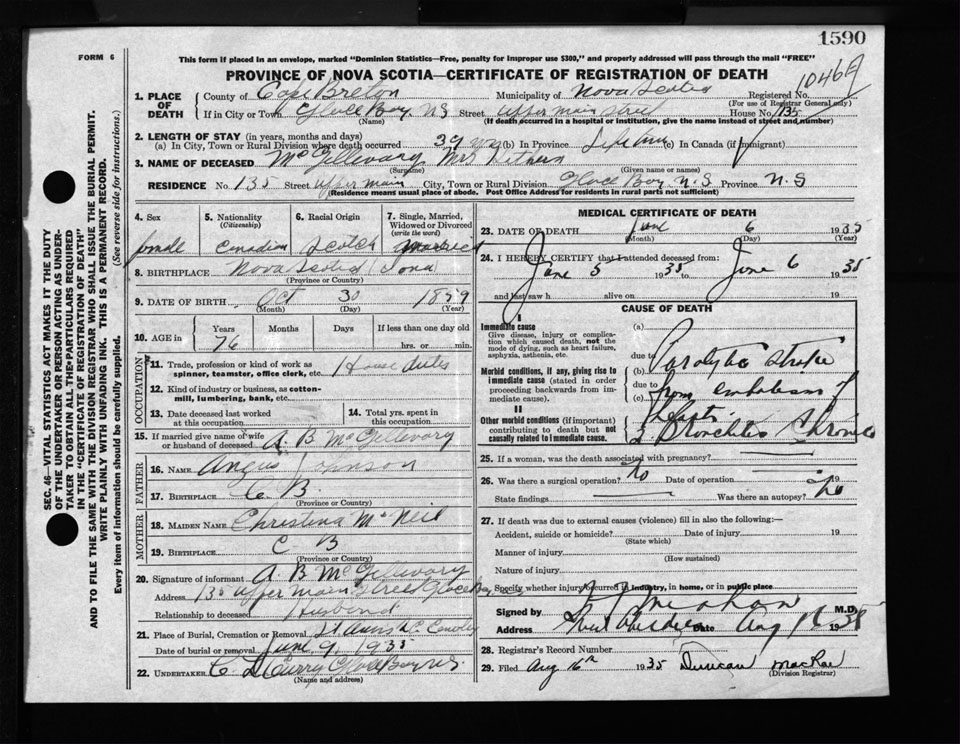 1590
FORM 6
This form if placed in an envelope, marked "Dominion Statistics—Free, penalty for improper use $300," and properly addressed will pass through the mail "FREE"
PROVINCE OF NOVA SCOTIA—CERTIFICATE OF REGISTRATION OF DEATH
1. PLACE OF DEATH
County of Cape Breton Municipality of Nova Scotia Registered No.
(For use of Registrar General only)
If in City or Town Glace Bay, NS Street Upper Main Street House No. 135
(Name) (If death occurred in a hospital or institution, give the name instead of street and number)
2. LENGTH OF STAY (in years, months and days)
(a) In City, Town or Rural Division where death occurred 39 yrs (b) In Province Lifetime (c) In Canada (if immigrant)
3. NAME OF DECEASED McGillevary Mrs
(Surname) (Given name or names)
RESIDENCE No. 135 Street Upper Main City, Town or Rural Division Glace Bay N.S Province N.S
(Residence means usual place of abode. Post Office Address for residents in rural parts not sufficient)
4. Sex female
5. Nationality (Citizenship) Canadian
6. Racial Origin Scotch
7. Single, Married, Widowed or Divorced (write the word) Married
8. BIRTHPLACE Nova Scotia Iona
(Province or Country)
9. DATE OF BIRTH Oct 30 1859
(Month) (Day) (Year)
10. AGE in Years Months Days If less than one day old
76 hrs. or min.
OCCUPATION
11. Trade, profession or kind of work as spinner, teamster, office clerk, etc. House duties
12. Kind of industry or business, as cotton-mill, lumbering, bank, etc.
13. Date deceased last worked at this occupation
14. Total yrs. spent in this occupation
15. If married give name of wife or husband of deceased A B McGillevary
FATHER
16. NAME Angus Johnson
17. BIRTHPLACE C. B.
(Province or Country)
MOTHER
18. MAIDEN NAME Christina McNeil
19. BIRTHPLACE C B
(Province or Country)
20. Signature of informant A B McGillevary
Address 135 Upper Main Street Glace Bay
Relationship to deceased Husband
21. Place of Burial, Cremation or Removal
Date of burial or removal June 9, 1935
22. UNDERTAKER Curry Glace Bay NS
(Name and address)
MEDICAL CERTIFICATE OF DEATH
23. DATE OF DEATH June 6 1935
(Month) (Day) (Year)
24. I HEREBY CERTIFY that I attended deceased from:
June 5 1935 to June 6 1935
and last saw h alive on 19
CAUSE OF DEATH
I
Immediate cause
Give disease, injury or complication which caused death, not the mode of dying, such as heart failure, asphyxia, asthenia, etc.
(a)
due to
Morbid conditions, if any, giving rise to immediate cause (stated in order proceeding backwards from immediate cause).
(b) Paralytic stroke
due to
(c) from embolism of
II
Other morbid conditions (if important) contributing to death but not causally related to immediate cause.
Bronchitis Chronic
25. If a woman, was the death associated with pregnancy?
26. Was there a surgical operation? No Date of operation 19
State findings Was there an autopsy? No
27. If death was due to external causes (violence) fill in also the following:—
Accident, suicide or homicide? Date of injury 19
(State which)
Manner of injury
(How sustained)
Nature of injury
Specify whether injury occurred in industry, in home, or in public place
Signed by M.D.
Address Date Aug 16 1935
28. Registrar's Record Number
29. Filed Aug 16th 1935 Duncan MacRae
(Division Registrar)
SEC. 46—VITAL STATISTICS ACT MAKES IT THE DUTY
OF THE UNDERTAKER OR PERSON ACTING AS UNDERTAKER
TO OBTAIN ALL THE PARTICULARS REQUIRED
IN THE "CERTIFICATE OF REGISTRATION OF DEATH"
AND TO FILE THE SAME WITH THE DIVISION REGISTRAR WHO SHALL ISSUE THE BURIAL PERMIT.
WRITE PLAINLY WITH UNFADING INK. THIS IS A PERMANENT RECORD.
Every item of information should be carefully supplied. (See reverse side for instructions.)